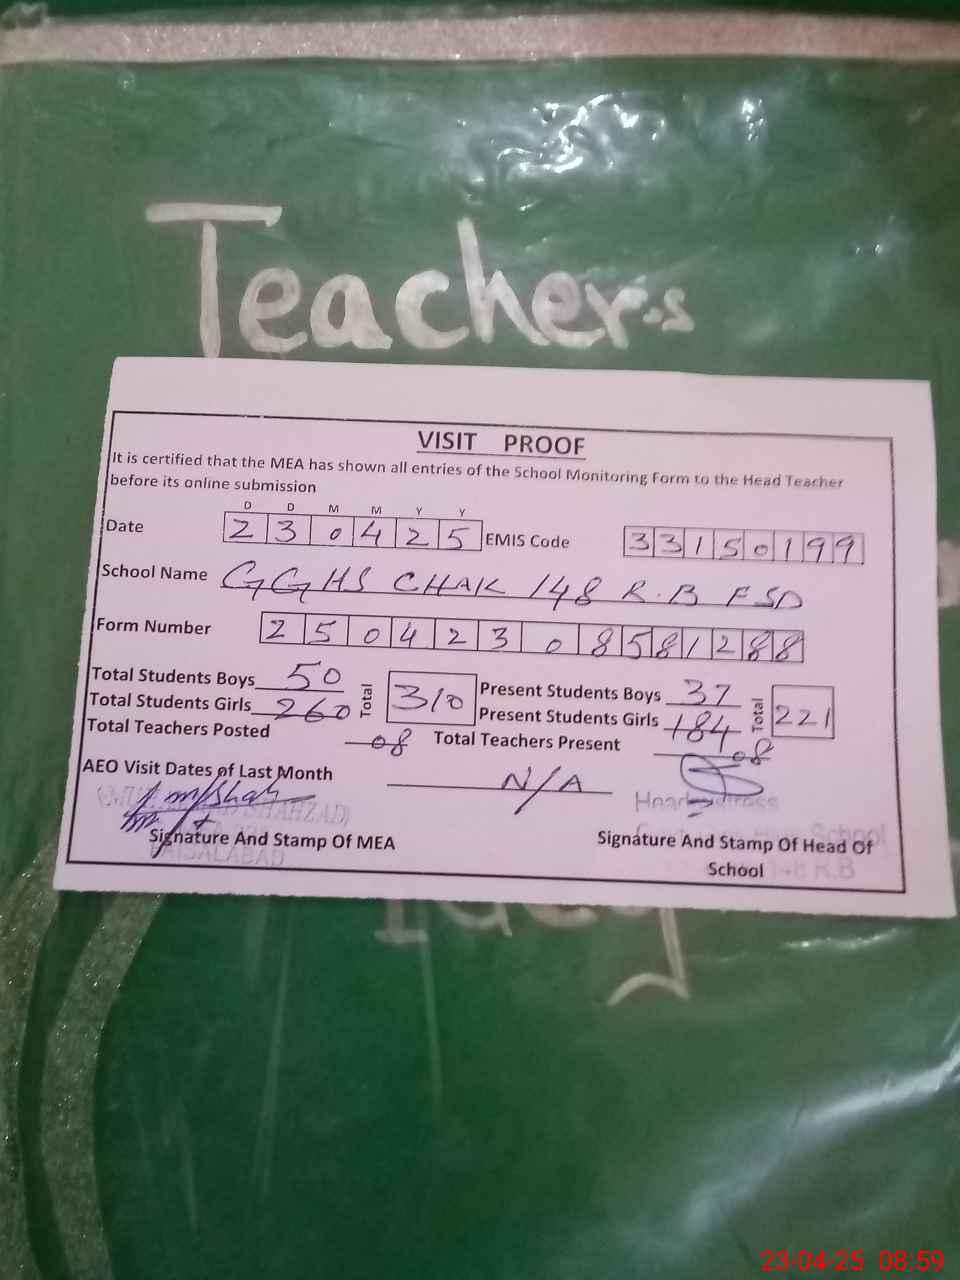 Teachers
VISIT PROOF
It is certified that the MEA has shown all entries of the School Monitoring Form to the Head Teacher
before its online submission
D D M M Y Y
Date 2 3 0 4 2 5 EMIS Code 3 3 1 5 0 1 9 9
School Name GGHS CHAK 148 R.B FSD
Form Number 2 5 0 4 2 3 0 8 5 8 1 2 8 8
Total Students Boys 50 Total 310 Present Students Boys 37 Total 221
Total Students Girls 260 Present Students Girls 184
Total Teachers Posted 08 Total Teachers Present 08
AEO Visit Dates of Last Month N/A
SHAHZAD)
Signature And Stamp Of MEA
FAISALABAD
Signature And Stamp Of Head Of
School
School
R.B
23-04-25 08:59